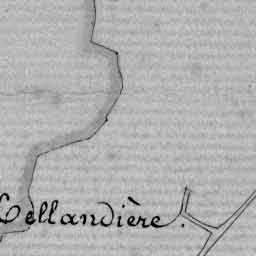 Cellandière.